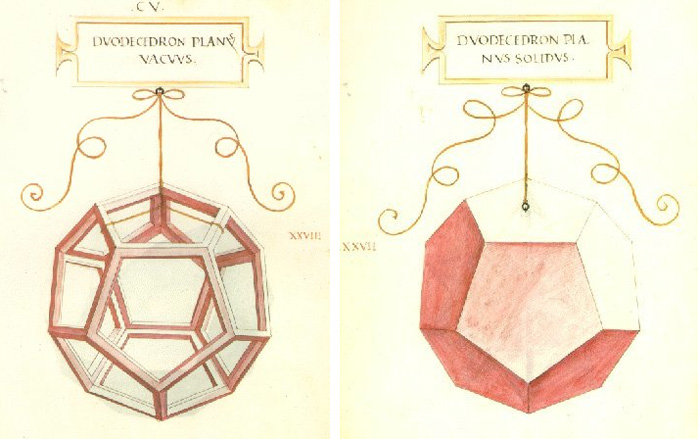 .CV.
DVODECEDRON PLANVS
VACVVS.
XXVIII
DVODECEDRON PLA.
NVS SOLIDVS.
XXVII